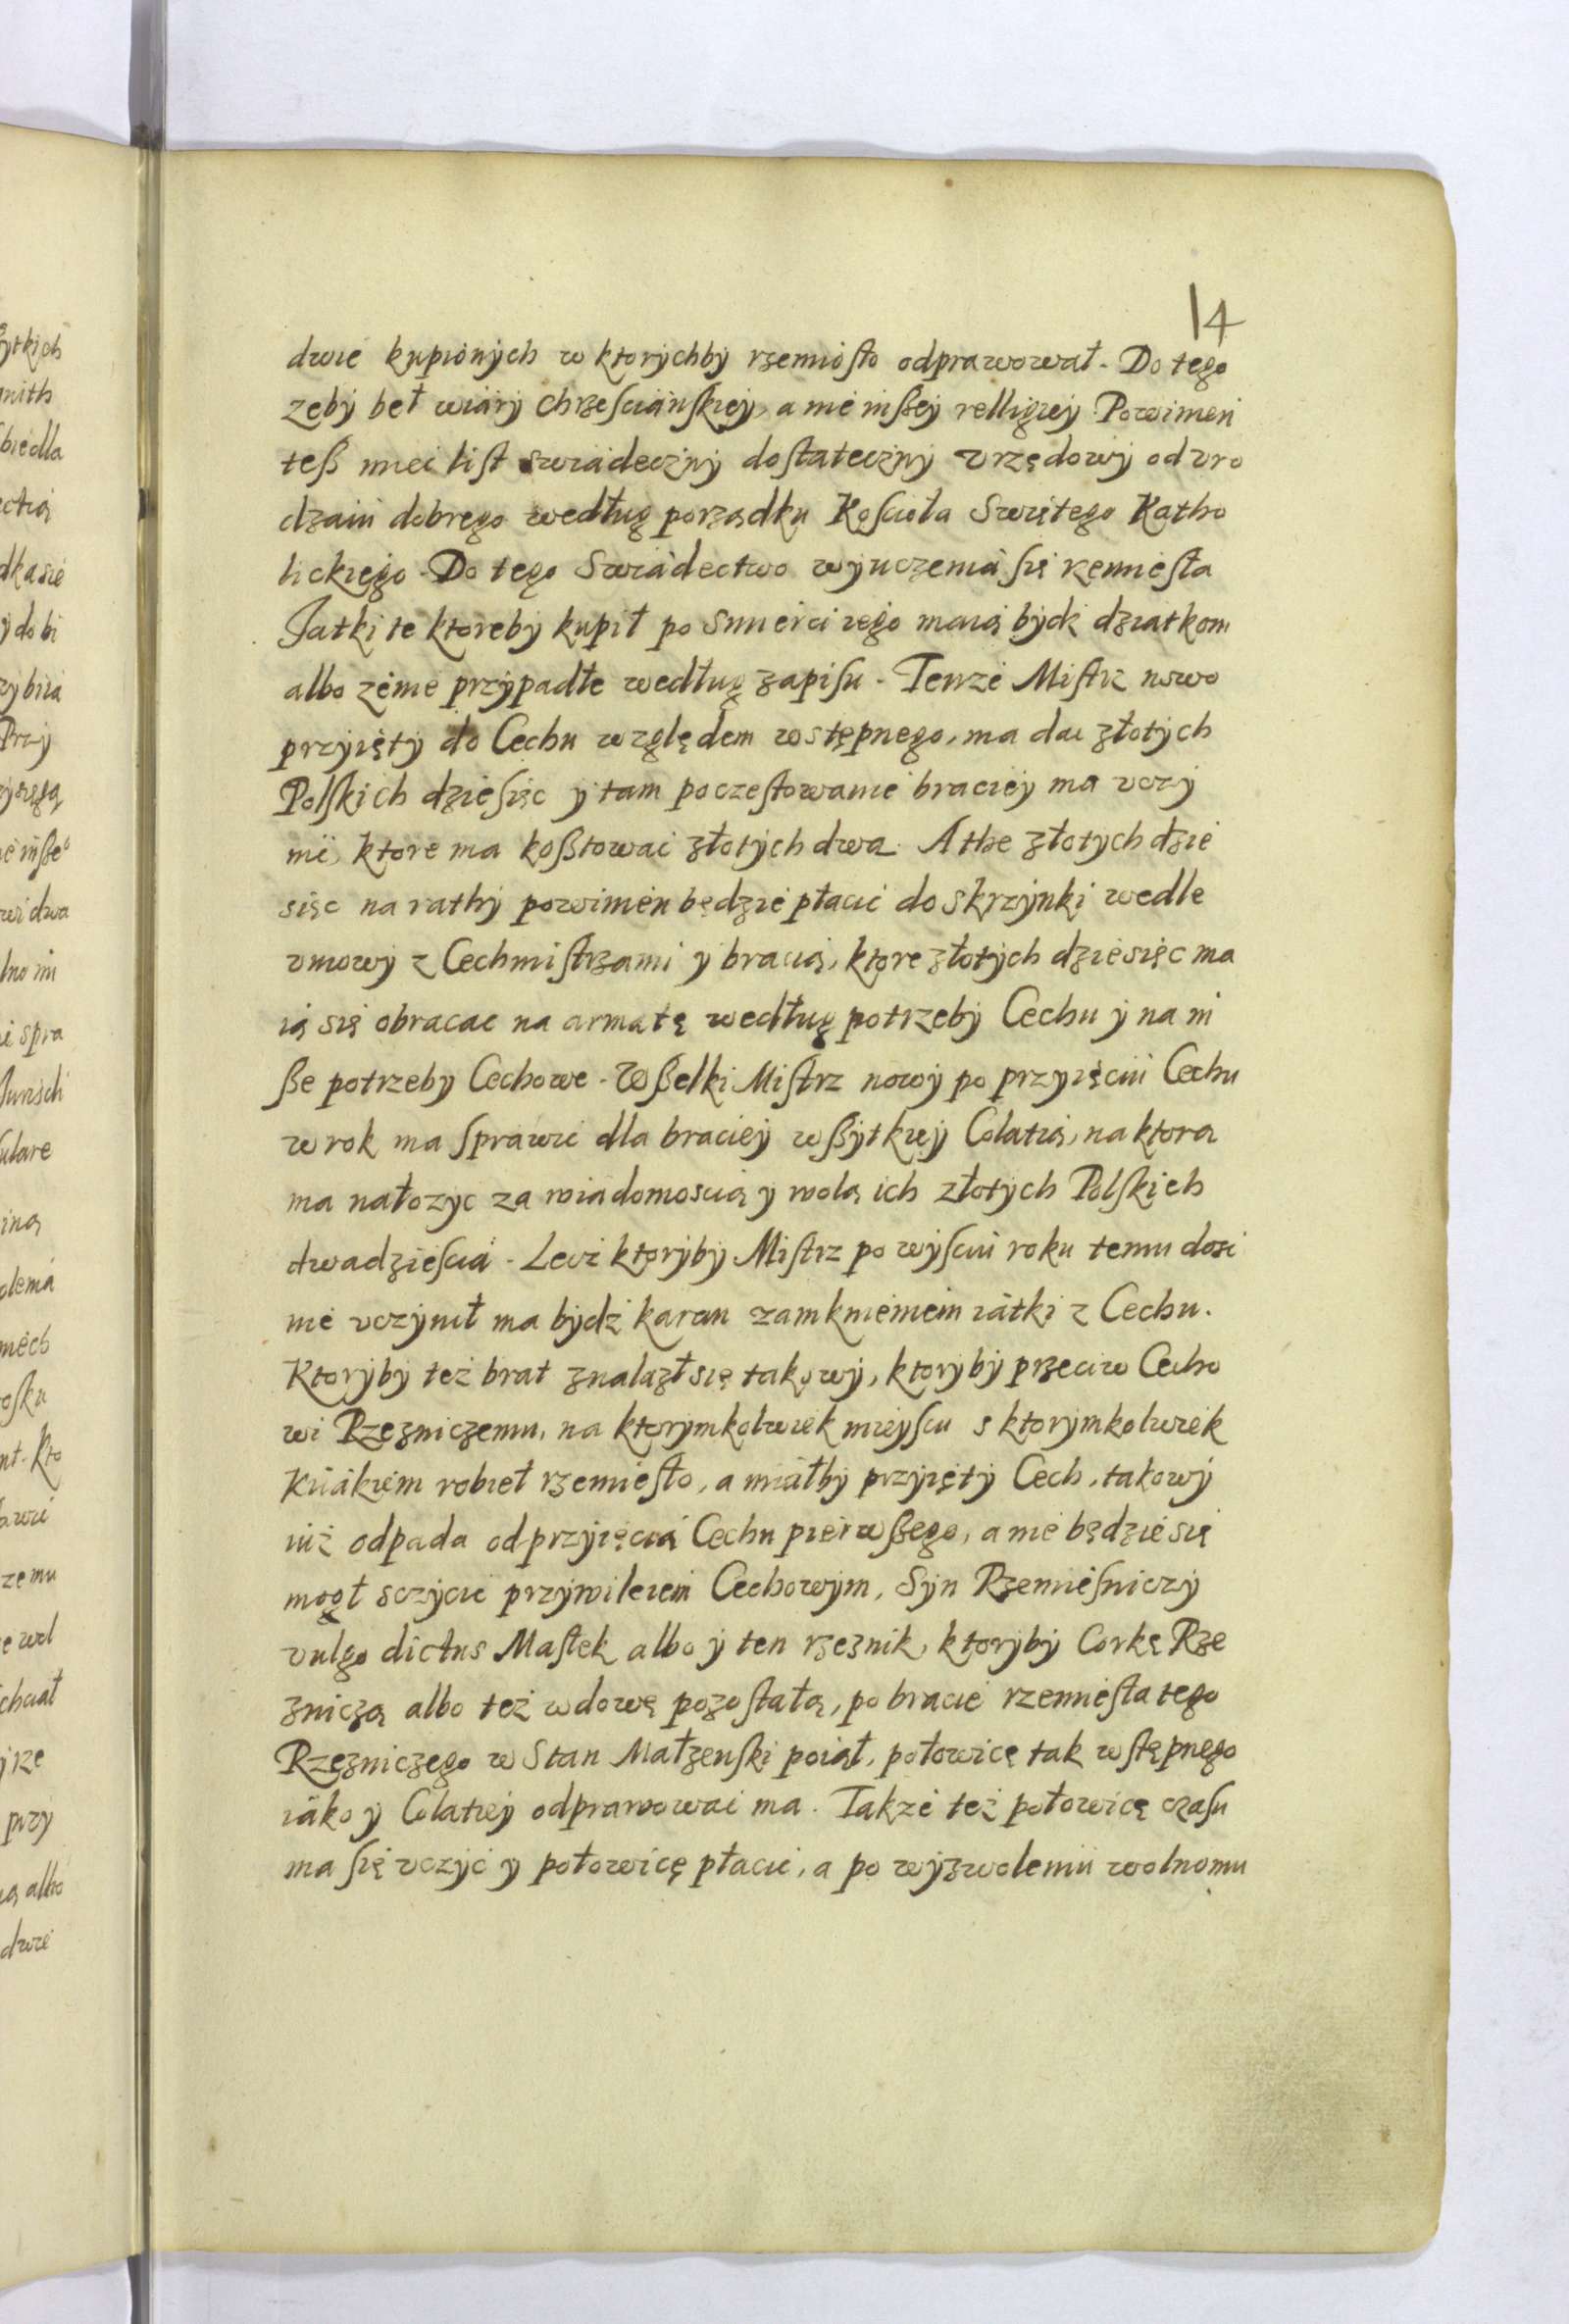 14
dwie kupionych w ktorychby rzemiosło odprawował. Do tego
zeby beł wiary chrzesciańskiey, a nie inßey relligiey. Powinien
teß miec list swiadeczny dostateczny vrzędowy od vro
dzaiu dobrego według porządku Koscioła Swiętego Katho
lickiego. Do tego Swiadectwo wyuczenia się rzemiesła
Jatki te ktoreby kupił po smierci iego maią bydz dziatkom
albo zenie przypadłe według zapisu. Tenze Mistrz nowo
przyięty do Cechu względem wstępnego, ma dac złotych
Polskich dziesięc y tam poczestowanie braciey ma vczy
nic, ktore ma koßtowac złotych dwa. A the złotych dzie
sięc na rathy powinien będzie płacic do skrzynki wedle
vmowy z Cechmistrzami y bracią, ktore złotych dziesięc ma
ią się obracac na armatę według potrzeby Cechu y na in
ße potrzeby Cechowe. Wßelki Mistrz nowy po przyięciu Cechu
w rok ma sprawic dla braciey wßytkiey Colatią, na ktora
ma nałozyc za wiadomoscią y wolą ich złotych Polskich
dwadziescia. Lecz ktoryby Mistrz po wysciu roku temu dosic
nie vczynił ma bydz karan zamknieniem iatki z Cechu.
Ktoryby tez brat znalazł się takowy, ktoryby przeciw Cecho
wi Rzezniczemu, na ktorymkolwiek mieyscu s ktorymkolwiek
Kuiakiem robieł rzemiesło, a miałby przyięty Cech, takowy
iuż odpada od przyięcia Cechu pierwßego, a nie będzie się
mogł sczycic przywileiem Cechowym. Syn Rzemiesniczy
vulgo dictus Mastek albo y ten rzeznik, ktoryby Corkę Rze
zniczą albo też wdowę pozostałą, po bracie rzemiesła tego
Rzezniczego w Stan Małzenski poiął, połowicę tak wstępnego
iako y Colatiey odprawowac ma. Takze też połowicę czasu
ma się vczyc y połowicę płacic, a po wyzwoleniu wolnomu